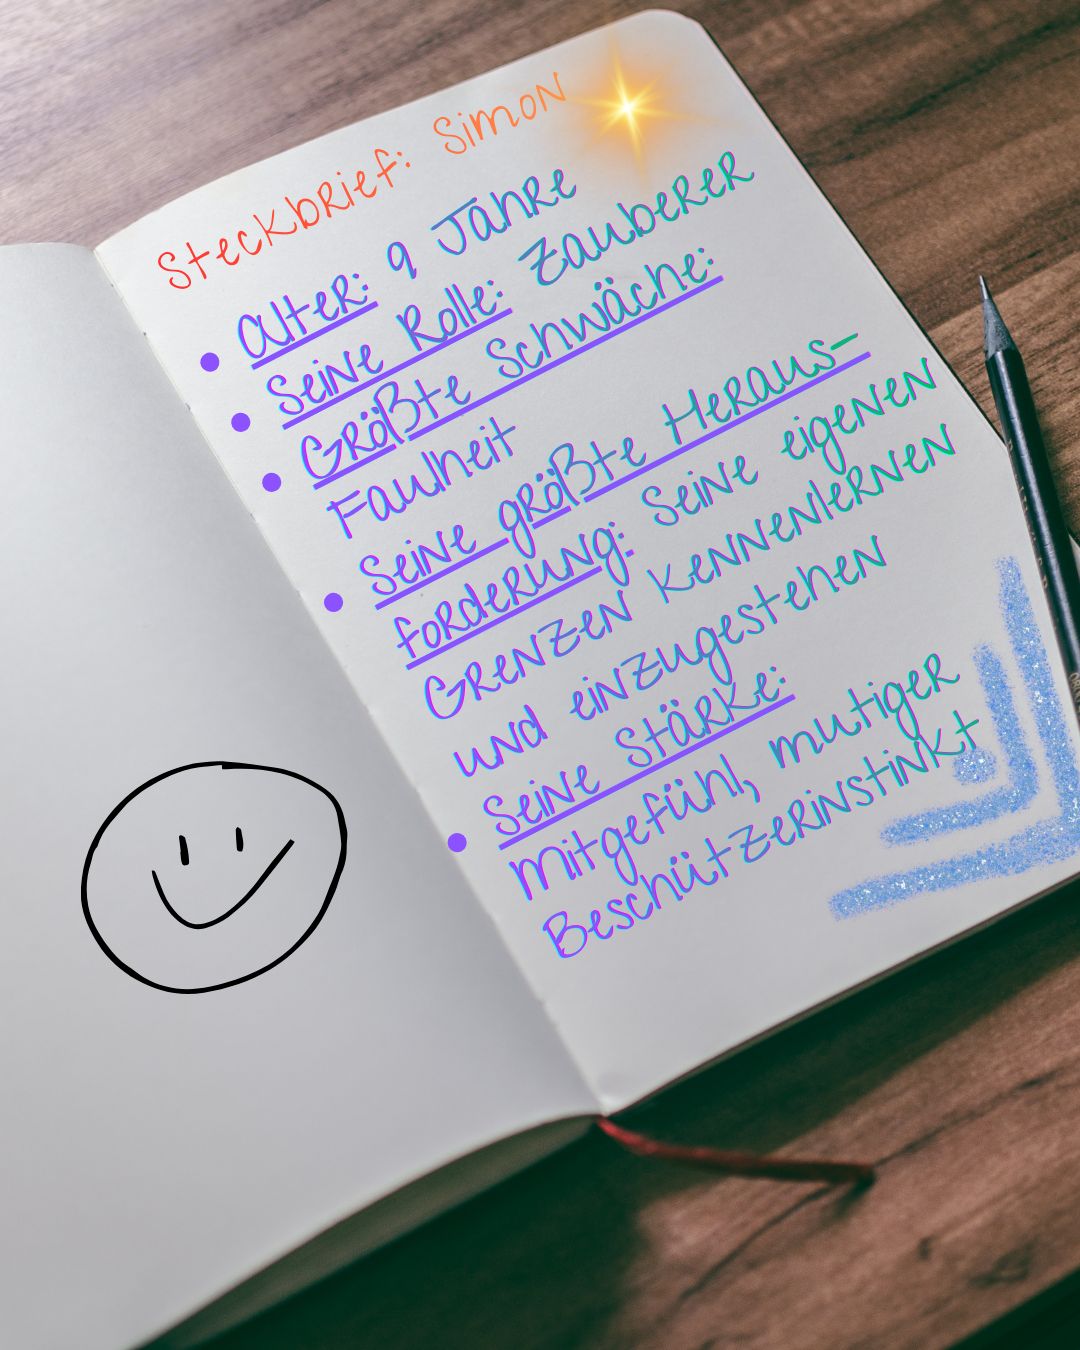 Steckbrief: Simon
Alter: 9 Jahre
Seine Rolle: Zauberer
Größte Schwäche:
Faulheit
Seine größte Heraus-
forderung: Seine eigenen
Grenzen kennenlernen
und einzugestehen
Seine Stärke:
Mitgefühl, mutiger
Beschützerinstinkt